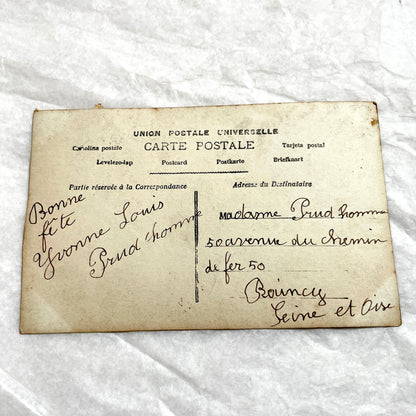 UNION POSTALE UNIVERSELLE
Carolina postale CARTE POSTALE Tarjeta postal
Levelezo-lap Postcard Postkarte Briefkaart
Partie réservée à la Correspondance
Adresse du Destinataire
Bonne
fête
Yvonne Louis
Prud'homme
Madame Prud'homme
50 avenue du chemin
de fer 50
Raincy
Seine et Oise